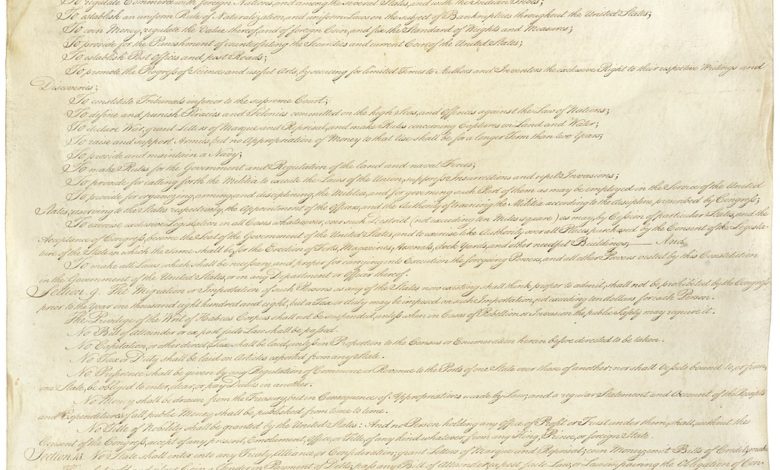 To regulate Commerce with foreign Nations, and among the several States, and with the Indian Tribes;
To establish an uniform Rule of Naturalization, and uniform Laws on the subject of Bankruptcies throughout the United States;
To coin Money, regulate the Value thereof, and of foreign Coin, and fix the Standard of Weights and Measures;
To provide for the Punishment of counterfeiting the Securities and current Coin of the United States;
To establish Post Offices and post Roads;
To promote the Progress of Science and useful Arts, by securing for limited Times to Authors and Inventors the exclusive Right to their respective Writings and
Discoveries;
To constitute Tribunals inferior to the supreme Court;
To define and punish Piracies and Felonies committed on the high Seas, and Offences against the Law of Nations;
To declare War, grant Letters of Marque and Reprisal, and make Rules concerning Captures on Land and Water;
To raise and support Armies, but no Appropriation of Money to that Use shall be for a longer Term than two Years;
To provide and maintain a Navy;
To make Rules for the Government and Regulation of the land and naval Forces;
To provide for calling forth the Militia to execute the Laws of the Union, suppress Insurrections and repel Invasions;
To provide for organizing, arming, and disciplining, the Militia, and for governing such Part of them as may be employed in the Service of the United
States, reserving to the States respectively, the Appointment of the Officers, and the Authority of training the Militia according to the discipline prescribed by Congress;
To exercise exclusive Legislation in all Cases whatsoever, over such District (not exceeding ten Miles square) as may, by Cession of particular States, and the
Acceptance of Congress, become the Seat of the Government of the United States, and to exercise like Authority over all Places purchased by the Consent of the Legisla-
ture of the State in which the Same shall be, for the Erection of Forts, Magazines, Arsenals, dock-Yards, and other needful Buildings;—And
To make all Laws which shall be necessary and proper for carrying into Execution the foregoing Powers, and all other Powers vested by this Constitution
in the Government of the United States, or in any Department or Officer thereof.
Section. 9. The Migration or Importation of such Persons as any of the States now existing shall think proper to admit, shall not be prohibited by the Congress
prior to the Year one thousand eight hundred and eight, but a Tax or duty may be imposed on such Importation, not exceeding ten dollars for each Person.
The Privilege of the Writ of Habeas Corpus shall not be suspended, unless when in Cases of Rebellion or Invasion the public Safety may require it.
No Bill of Attainder or ex post facto Law shall be passed.
No Capitation, or other direct, Tax shall be laid, unless in Proportion to the Census or Enumeration herein before directed to be taken.
No Tax or Duty shall be laid on Articles exported from any State.
No Preference shall be given by any Regulation of Commerce or Revenue to the Ports of one State over those of another: nor shall Vessels bound to, or from,
one State, be obliged to enter, clear, or pay Duties in another.
No Money shall be drawn from the Treasury, but in Consequence of Appropriations made by Law; and a regular Statement and Account of the Receipts
and Expenditures of all public Money shall be published from time to time.
No Title of Nobility shall be granted by the United States: And no Person holding any Office of Profit or Trust under them, shall, without the
Consent of the Congress, accept of any present, Emolument, Office, or Title, of any kind whatever, from any King, Prince, or foreign State.
Section. 10. No State shall enter into any Treaty, Alliance, or Confederation; grant Letters of Marque and Reprisal; coin Money; emit Bills of Credit; make
a Tender in Payment of Debts; pass any Bill of Attainder, ex post facto Law, or Law impairing the Obligation of Con-